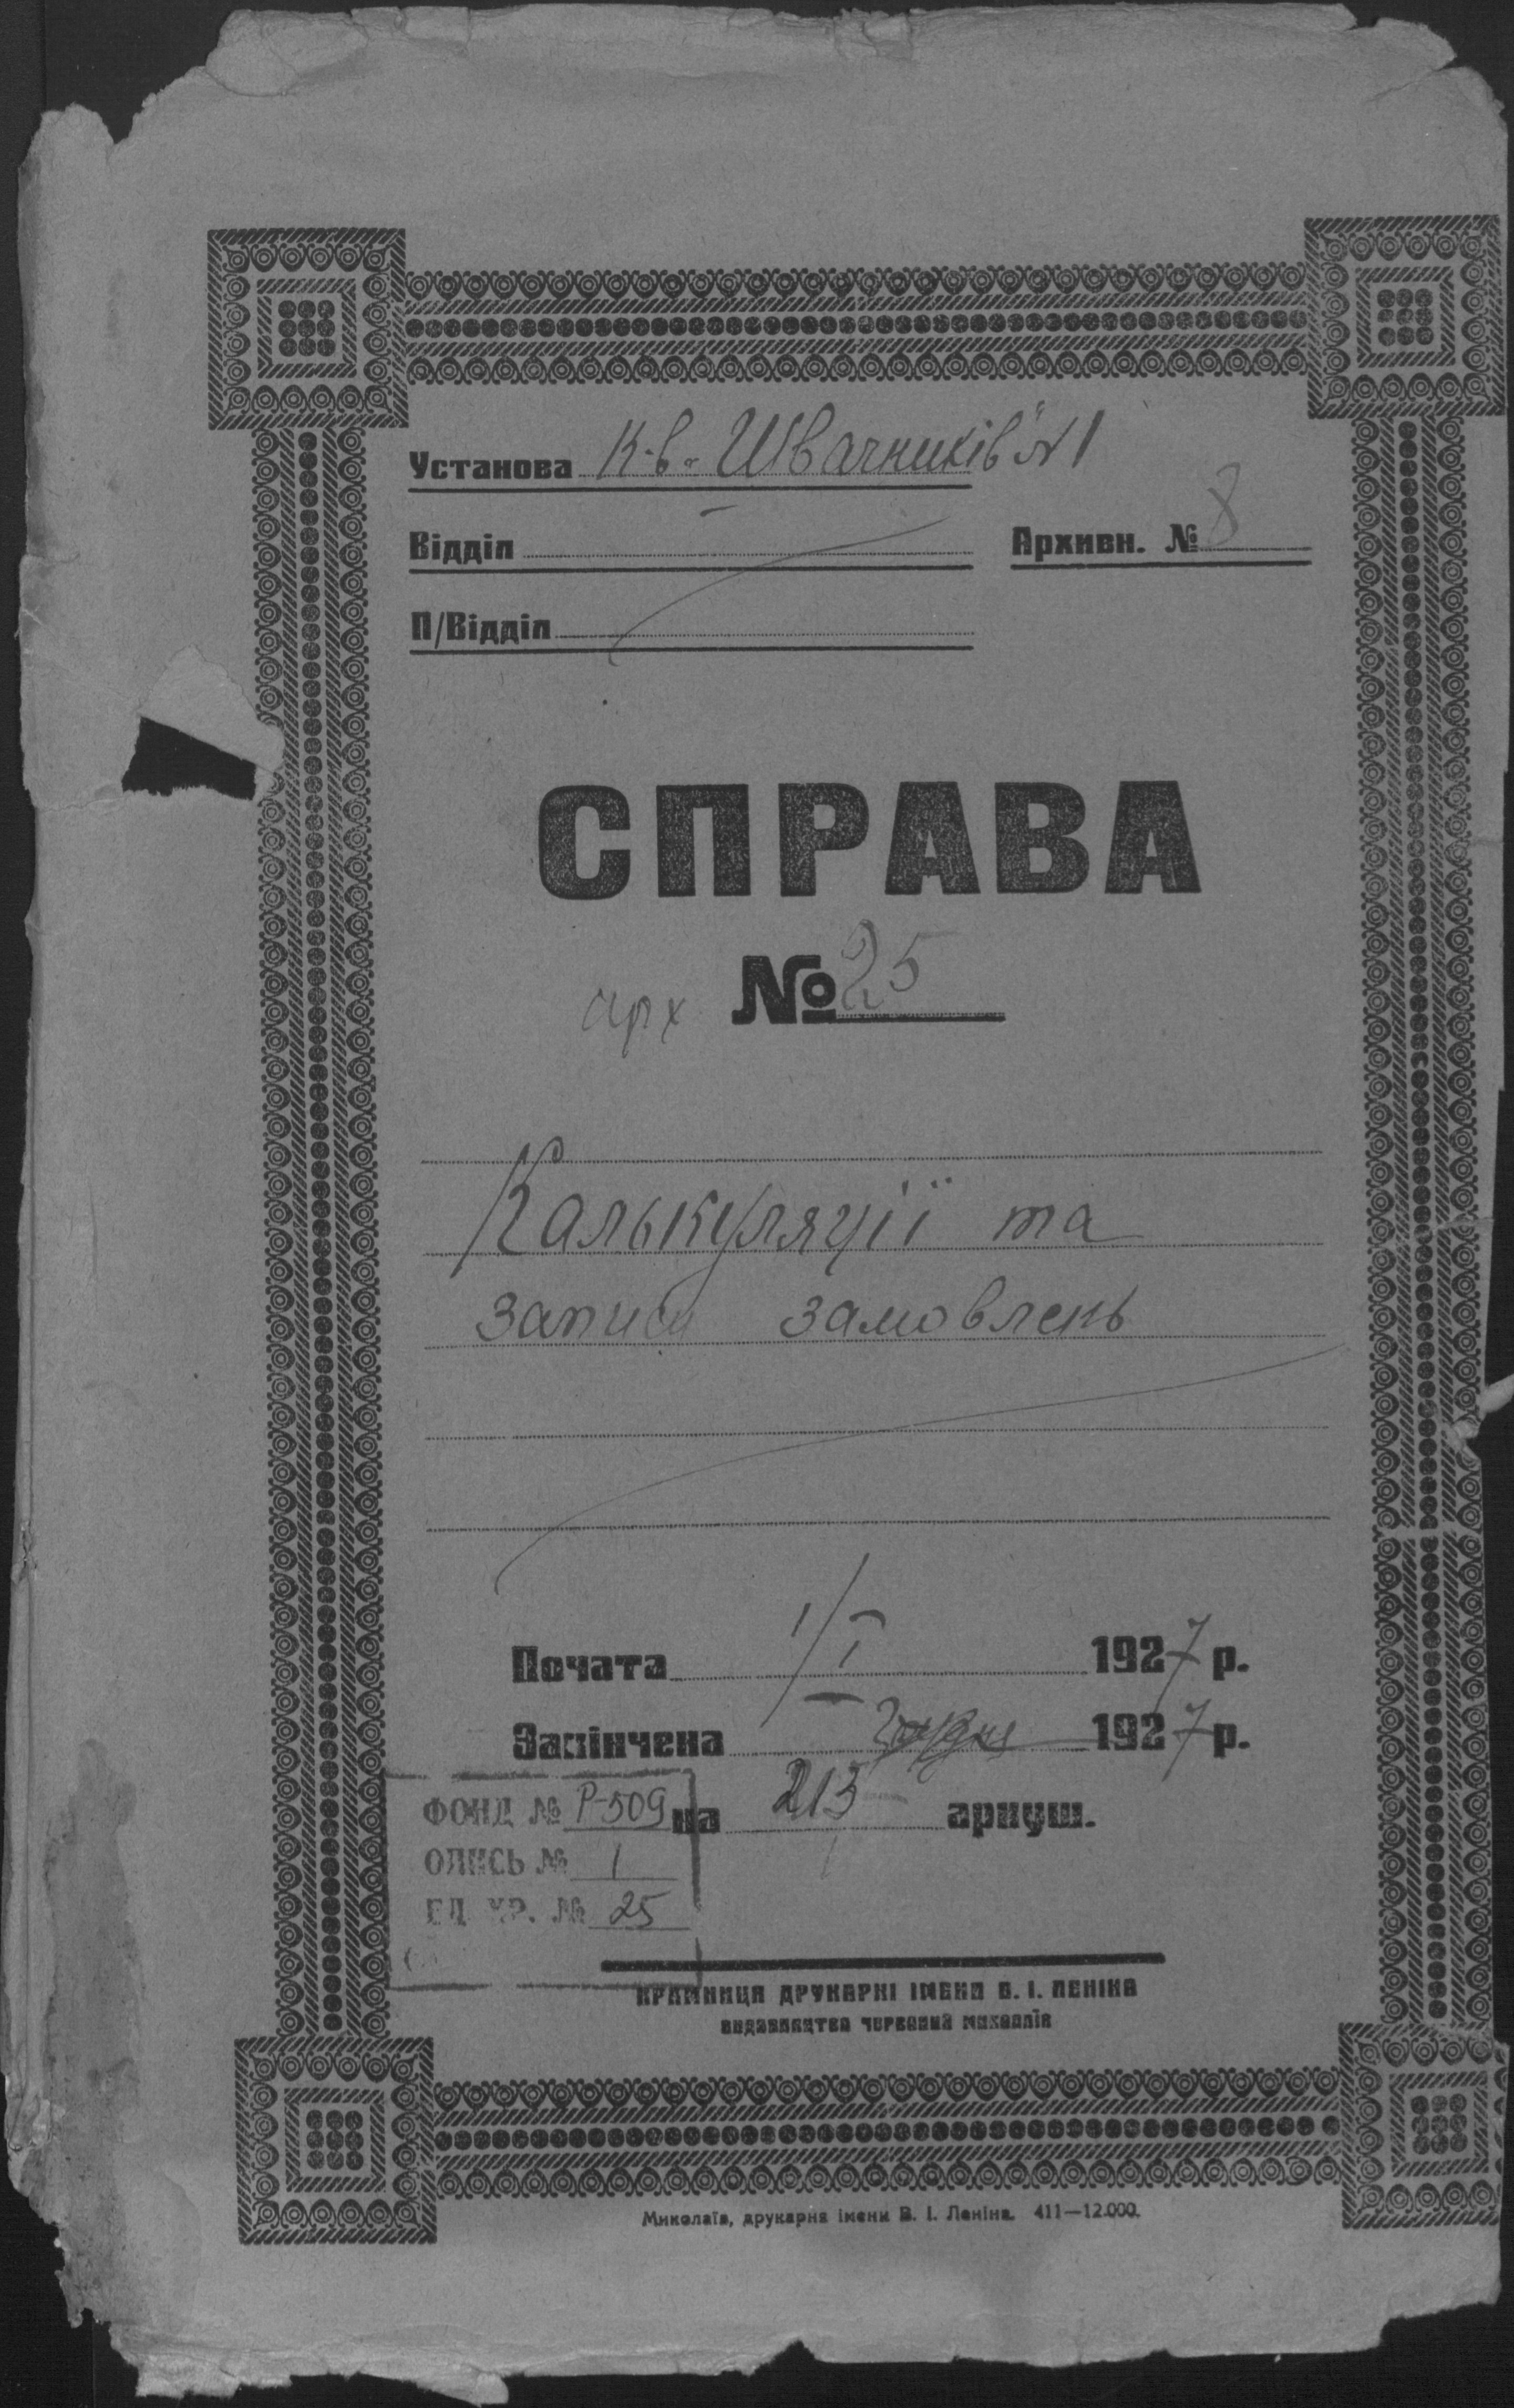 Установа К-в. „Швачників" №1
Відділ
Архивн. № 8
П/Відділ
СПРАВА
арх № 25
Калькуляції та
записи замовлень
Почата 1/I 1927 р.
Закінчена грудня 1927 р.
на 213 аркуш.
ФОНД № Р-509
ОПИСЬ № 1
ЕД. ХР. № 25
КРАМНИЦЯ ДРУКАРНІ ІМЕНИ В. І. ЛЕНІНА
видавництва червоний миколаїв
Миколаїв, друкарня імени В. І. Леніна. 411—12.000.